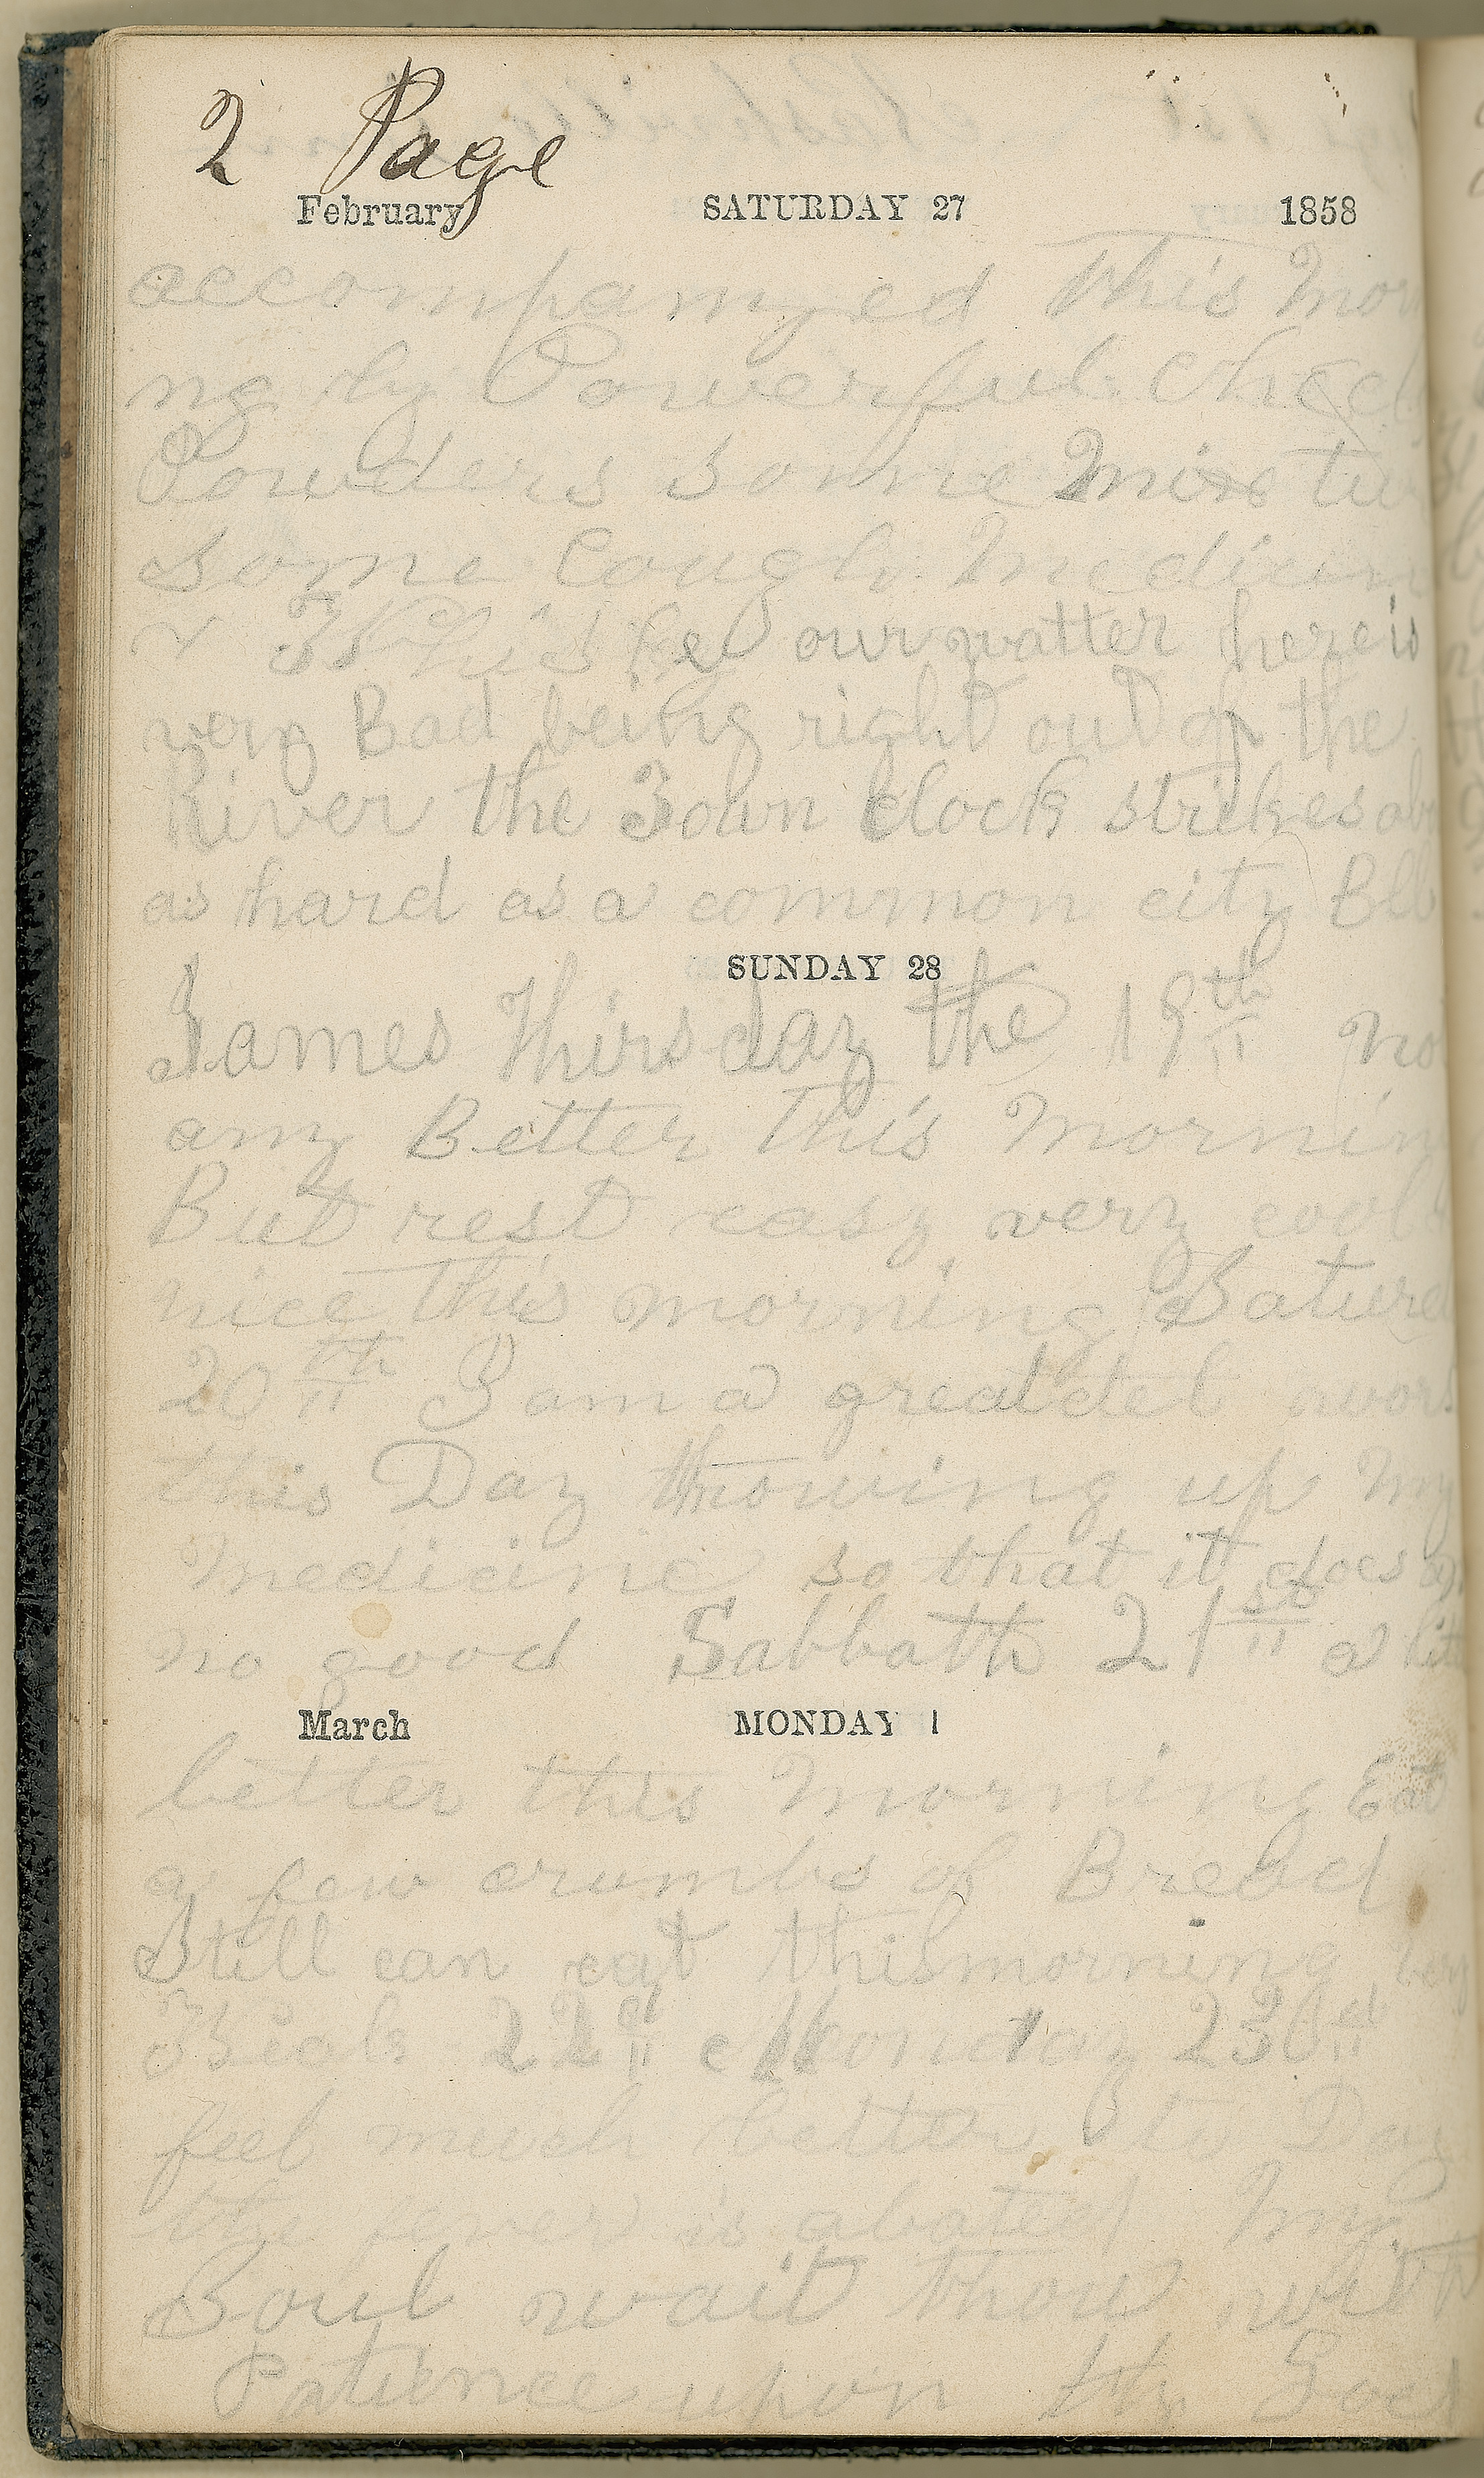 2 Page
February SATURDAY 27 1858
accompanyed this Mor
ng by Powerful
Powders some Mixtu
some Cough Medicin
& our watter here is
very Bad being right out of the
River the Town clock strikes ab
as hard as a common city Bll
SUNDAY 28
James Thirsday the 19th no
any Better this Mornin
But rest easy very cool
nice this morning Saturd
20th I am a great del wors
this Day throwing up My
Medicine so that it does
no good Sabbath 21st a lit
March MONDAY 1
better this Morning Eat
a few crumbs of Bread
Still can eat this morning
22d Monday 23d
feel much better to Day
the fever is abated My
Soul wait thou with
Patience upon thy God